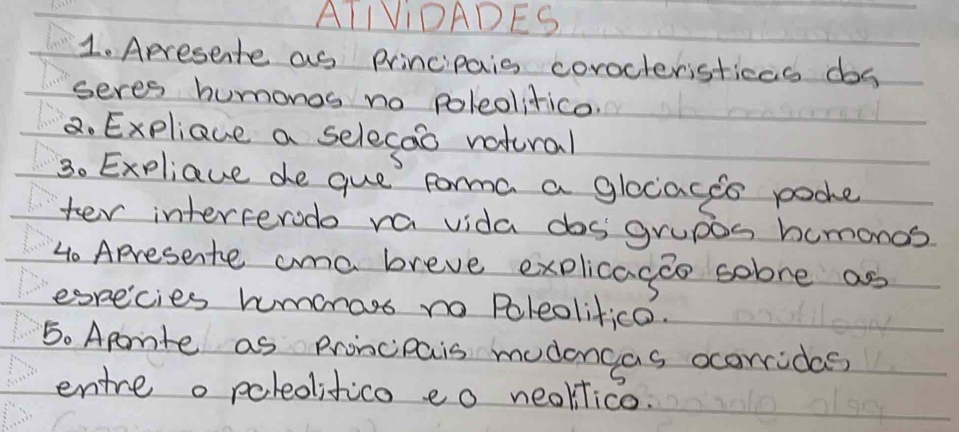 ATIVIDADES
1. Apresente as principais caracteristicas dos
seres humanos no Paleolitico.
2. Explique a seleção natural
3. Explique de que forma a glaciação pode
ter interferido na vida dos grupos humanos
4. Apresente uma breve explicação sobre as
espécies humanas no Paleolitico.
5. Aponte as principais mudanças ocorridas
entre o paleolitico e o neolítico.